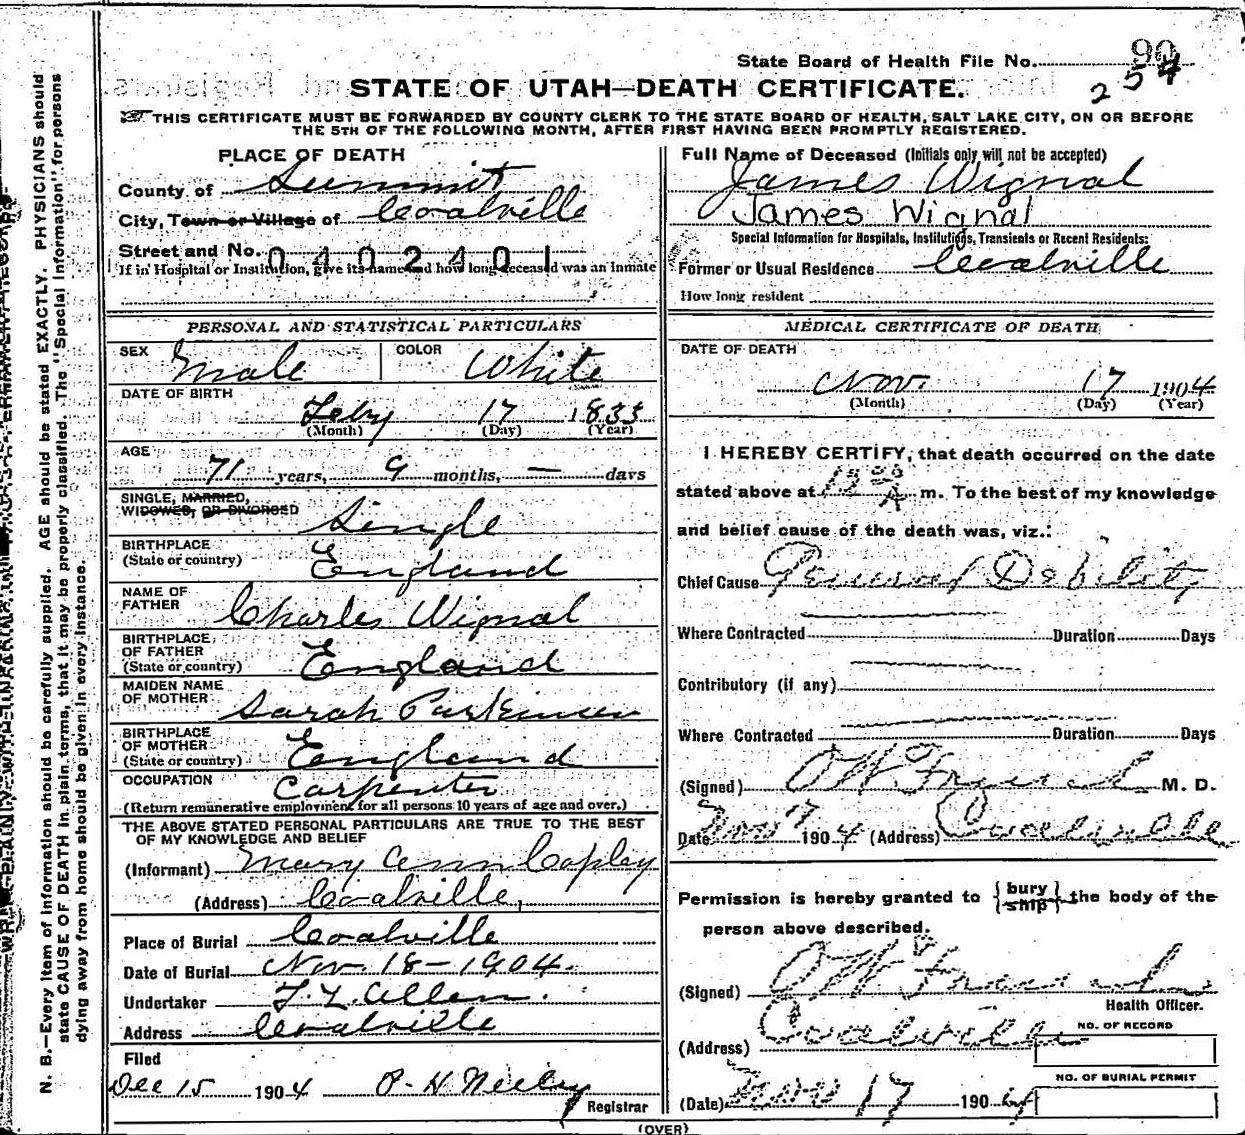 State Board of Health File No. 90
254
STATE OF UTAH—DEATH CERTIFICATE.
THIS CERTIFICATE MUST BE FORWARDED BY COUNTY CLERK TO THE STATE BOARD OF HEALTH, SALT LAKE CITY, ON OR BEFORE
THE 5TH OF THE FOLLOWING MONTH, AFTER FIRST HAVING BEEN PROMPTLY REGISTERED.
PLACE OF DEATH
County of Summit
City, Town or Village of Coalville
Street and No. 0402401
If in Hospital or Institution, give its name and how long deceased was an Inmate
Full Name of Deceased (Initials only will not be accepted)
James Wignal
James Wignal
Special Information for Hospitals, Institutions, Transients or Recent Residents:
Former or Usual Residence Coalville
How long resident
PERSONAL AND STATISTICAL PARTICULARS
SEX Male COLOR White
DATE OF BIRTH
Feby 17 1833
(Month) (Day) (Year)
AGE
71 years, 9 months, — days
SINGLE, MARRIED,
WIDOWED, OR DIVORCED Single
BIRTHPLACE
(State or country) England
NAME OF
FATHER Charles Wignal
BIRTHPLACE
OF FATHER
(State or country) England
MAIDEN NAME
OF MOTHER Sarah Parkinson
BIRTHPLACE
OF MOTHER
(State or country) England
OCCUPATION Carpenter
(Return remunerative employment for all persons 10 years of age and over.)
THE ABOVE STATED PERSONAL PARTICULARS ARE TRUE TO THE BEST
OF MY KNOWLEDGE AND BELIEF
(Informant) Mary Ann Copley
(Address) Coalville,
Place of Burial Coalville
Date of Burial Nov. 18-1904.
Undertaker Allen.
Address Coalville
Filed
Dec 15 1904 P. H. Neeley
Registrar
MEDICAL CERTIFICATE OF DEATH
DATE OF DEATH
Nov. 17 1904
(Month) (Day) (Year)
I HEREBY CERTIFY, that death occurred on the date
stated above at 12 m. To the best of my knowledge
and belief cause of the death was, viz.:
Chief Cause General Debility
Where Contracted Duration Days
Contributory (if any)
Where Contracted Duration Days
(Signed) M. D.
Date Nov 17 1904 (Address) Coalville
Permission is hereby granted to {bury
ship} the body of the
person above described.
(Signed)
Health Officer.
(Address) Coalville
NO. OF RECORD
NO. OF BURIAL PERMIT
(Date) Nov 17 1904
(OVER)
N. B.—Every item of information should be carefully supplied. AGE should be stated EXACTLY. PHYSICIANS should
state CAUSE OF DEATH in plain terms, that it may be properly classified. The "Special Information" for persons
dying away from home should be given in every instance.